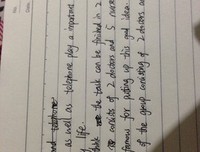 and telephone
as well as telephone play a important
life.
think the task can be finished in 2
consists of 2 doctors and 5 nurs
famous for putting up this good idea.
of the group consisting of 2 doctors and